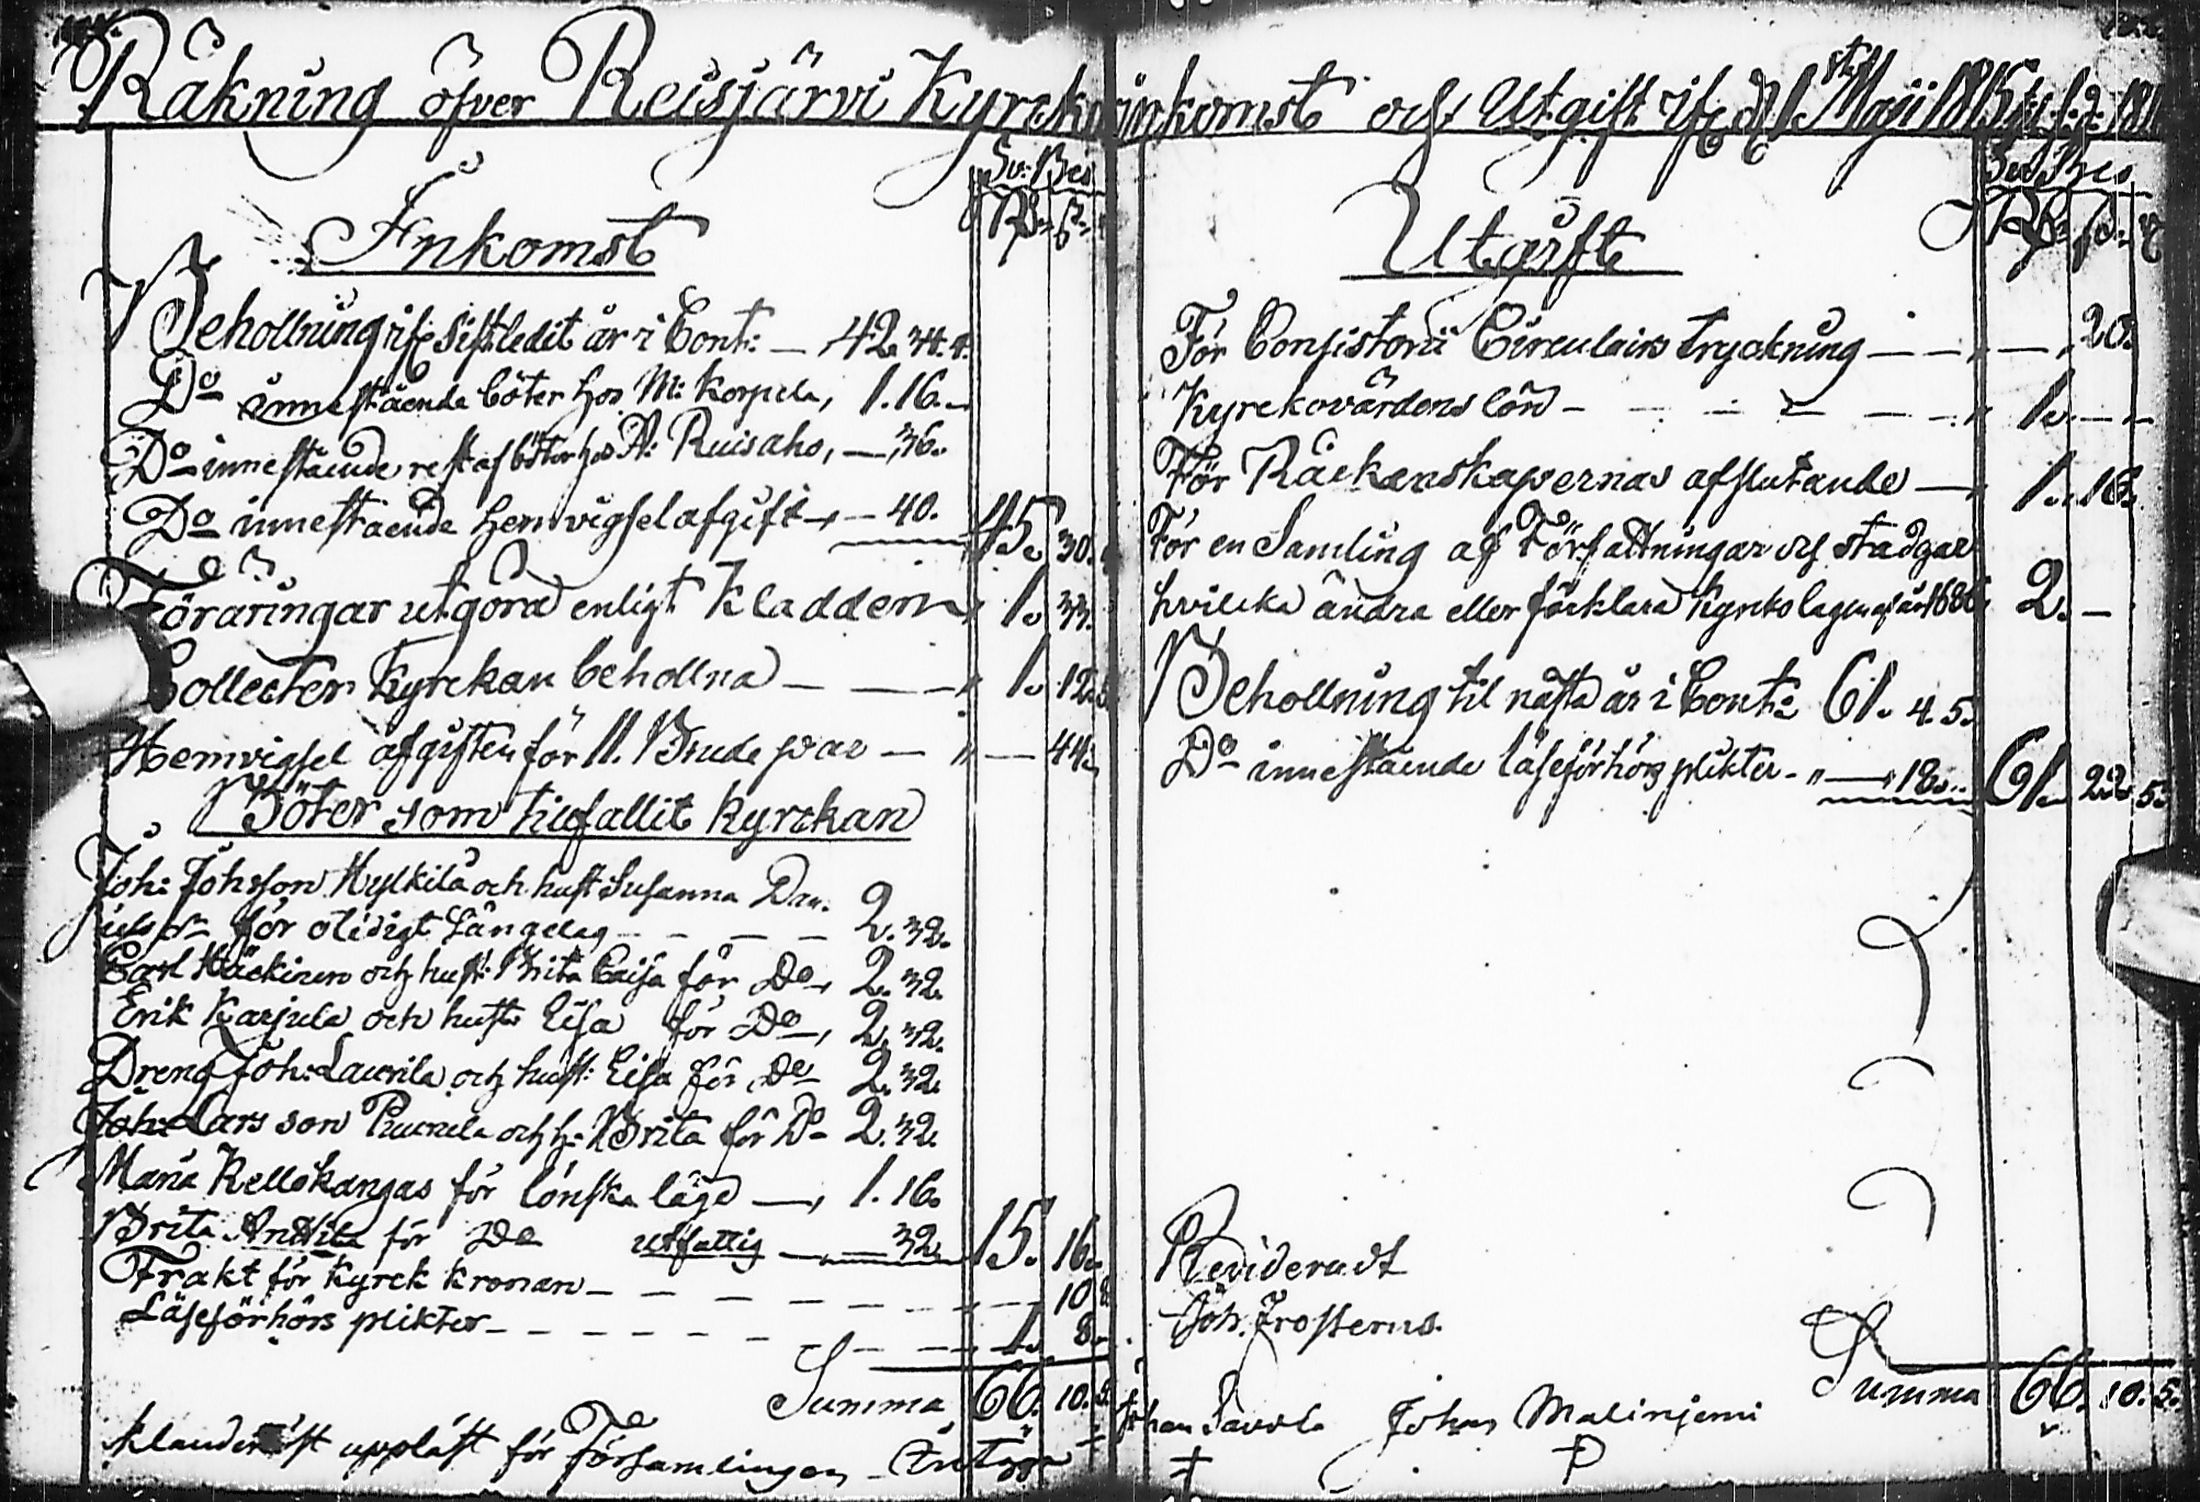 Räkning öfver Reisjärvi Kyrck inkomst och Utgift ifr. d. 1 st Maji 1815 til
Sv: Bco
Rd. s.
Inkomst
Behollning ifr. sistledit år i Cont: — 42. 34. 4.
Do innestående böter hos M: Korpela, 1. 16. –
Do innestående rest af böter hos A: Ruisaho, — 36.
Do innestående hemvigselafgift — 40. 45. 30.
Föräringar utgöra enligt Kladden 1. 33.
Collecter Kyrckan behollna — — — 1. 12.
Hemvigsel afgiften för 11. Brude par — " — 44.
Böter som tilfallit kyrckan
Joh: Johsson Hylkilä och hust Susanna Dan.
för olidigt Sängelag — — — — 2. 32.
Carl Häckinen och hust: Brita Caisa för Do 2. 32.
Erik Karjula och hust: Lisa för Do, 2. 32.
Dreng Joh: Laurila och hust: Lisa för Do 2. 32.
Joh: Larsson Puurula och h: Brita för Do 2. 32.
Maria Kellokangas för lönska läge —, 1. 16.
Brita Anttila för Do utfattig — 32. 15. 16.
Frakt för Kyrck kronan — — — — — — 10
Läseförhörs plikter — — — — — — 1. 8.
Summa 66. 10. 5.
klanderlöst uppläst för Församlingen
Sv. Bco
Rd. s. r
Utgift
För Consistorii Circulairs tryckning — — " — " 20.
Kyrckovärdens lön — — — — — — " 1. — —
För Räckenskapernas afslutande — " 1. 16.
För en Samling af Författningar och stadgar
hvilcka ändra eller förklara Kyrko lagen af år 1686 2. —
Behollning til nästa år i Cont: 61. 4. 5.
Do innestående läseförhörs plikter — " — 18. 61. 22. 5.
Revideradt
Joh. Frosterus.
Summa 66. 10. 5.
Johan Savola Johan Malinjemi